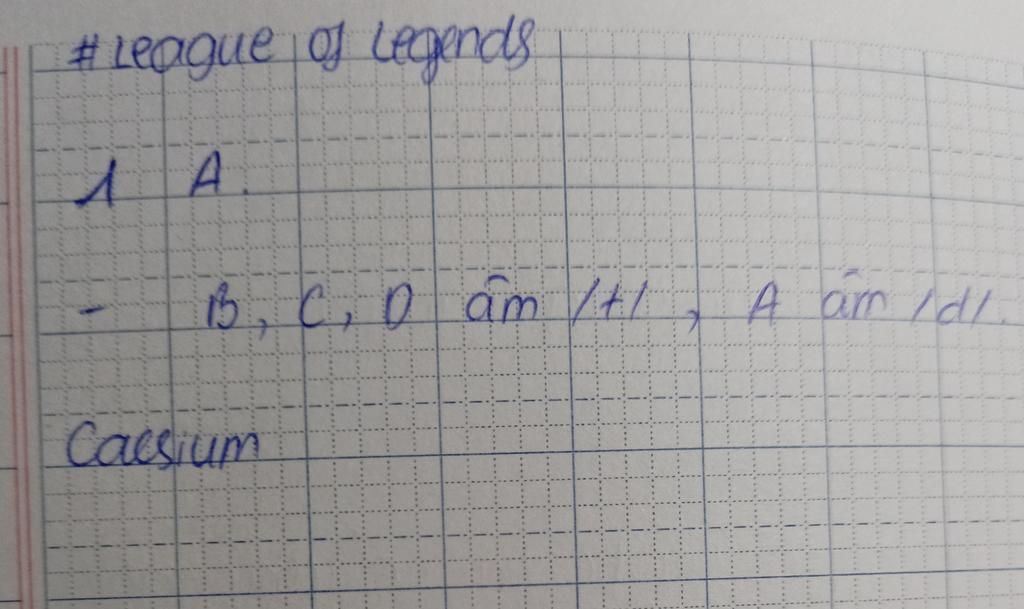 # League of Legends
1 A.
- B, C, D âm /t/, A âm /d/.
Caesium